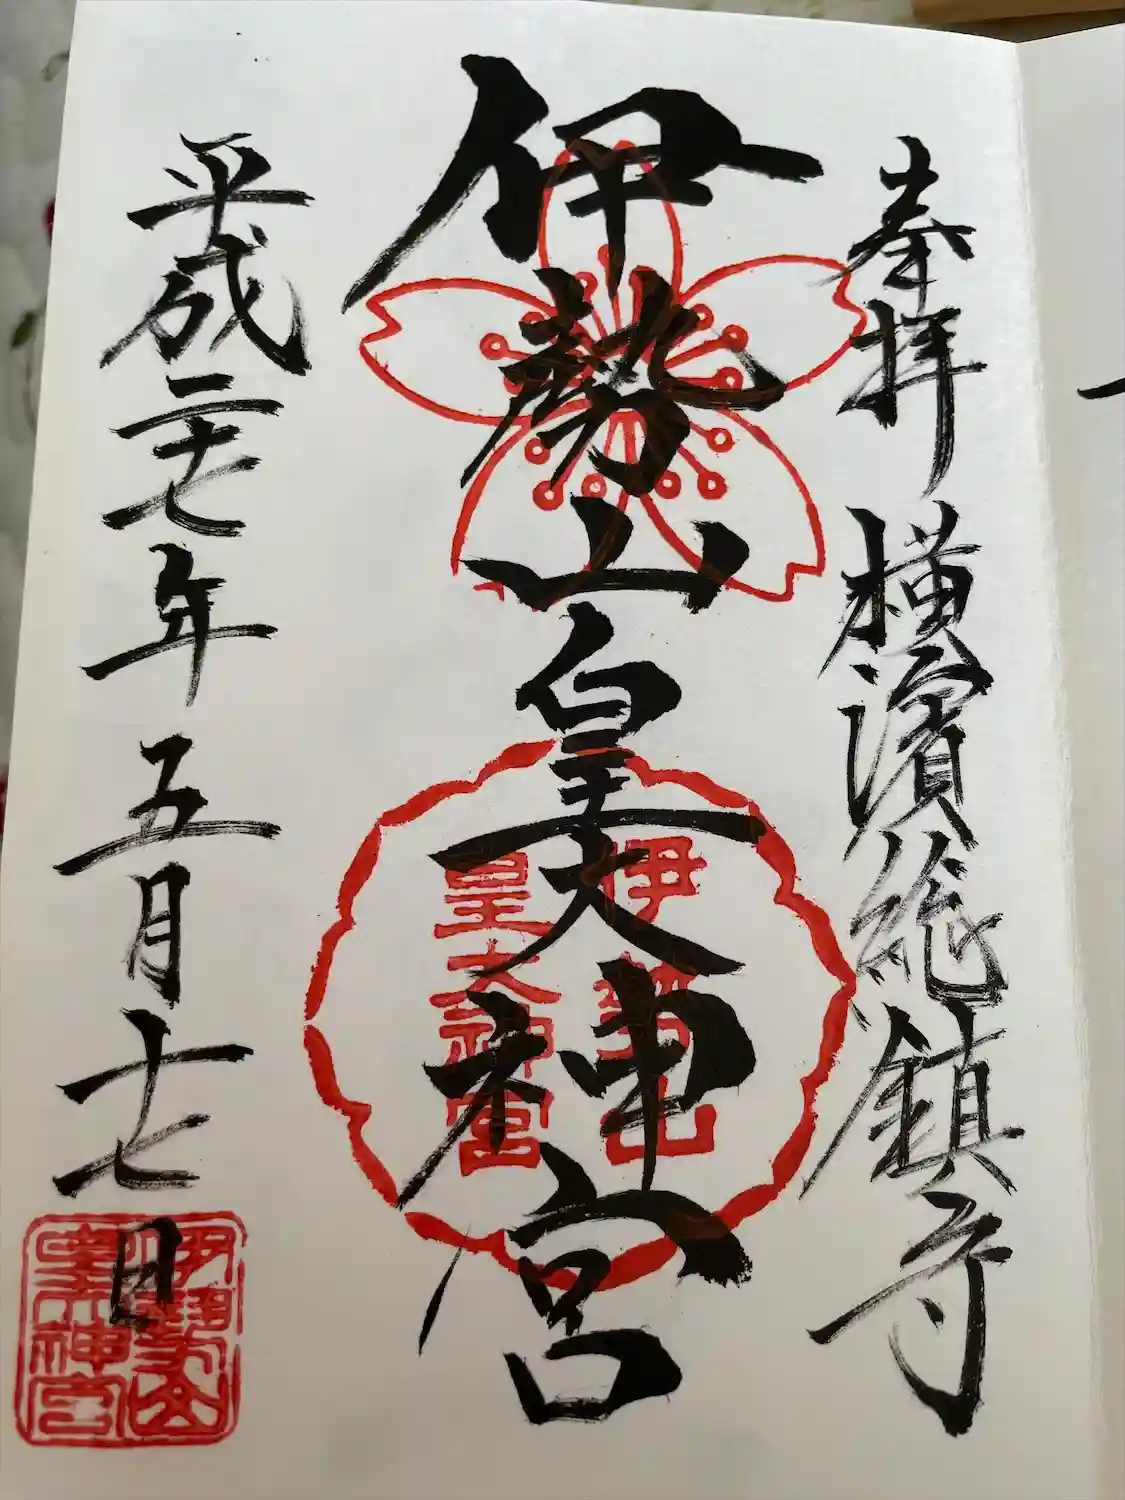 奉拝 横濱総鎮守
伊勢山皇大神宮
伊勢山
皇大神宮
平成二十七年五月十七日
伊勢山
皇大神宮